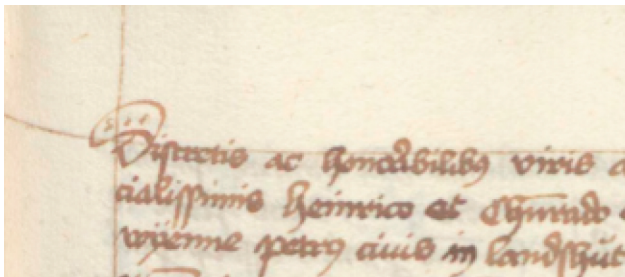 Discretis ac honorabilibus viris
cialissimis heinrico et Chunrado
wyenne petrus civis in landshut